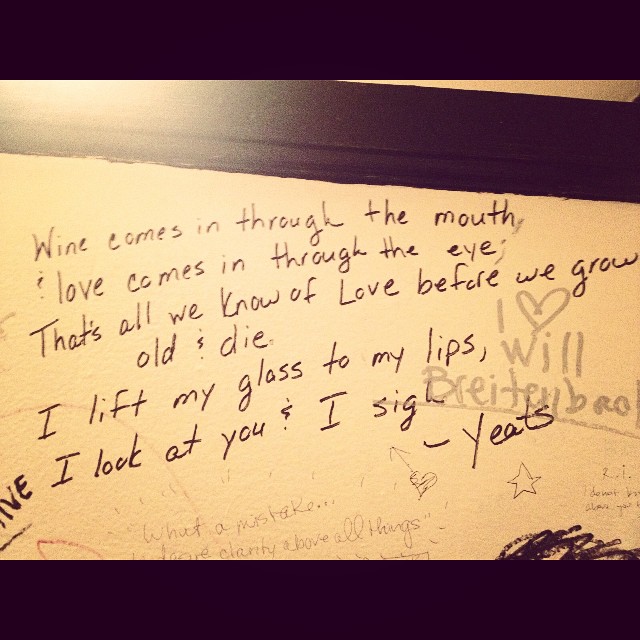 Wine comes in through the mouth,
& love comes in through the eye;
That's all we know of Love before we grow
old & die.
I lift my glass to my lips,
I look at you & I sigh
- Yeats
I ♡
Will
Breitenbach
"What a mistake...
clarity above all things"
R.I.